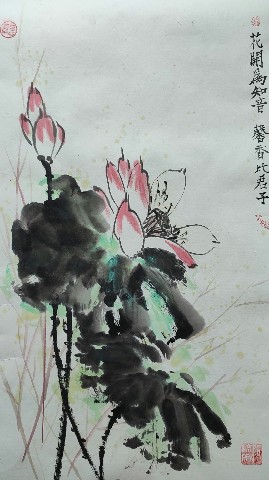 花開為知音 馨香比君子